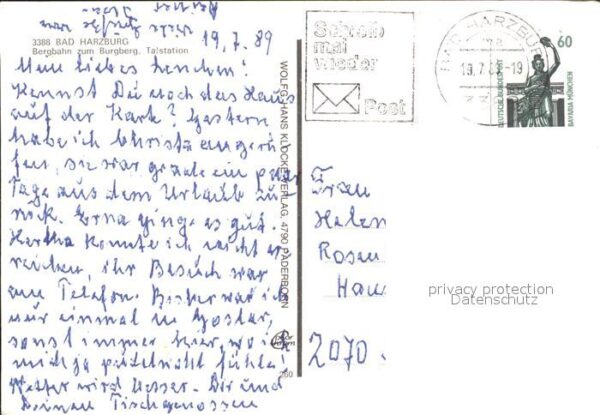 3388 BAD HARZBURG
Bergbahn zum Burgberg, Talstation
19.7.89
Mein liebes Lenchen!
Kennst Du noch das Haus
auf der Karte? Gestern
habe ich Christa angeru
fen, sie war gerade ein paar
Tage aus dem Urlaub zu-
rück. Erna ginge es gut.
Hertha konnte ich nicht er
reichen, ihr Besuch war
am Telefon. Bisher war ich
nur einmal in Goslar,
sonst immer hier, wo ich
mich ja
Wetter wird besser. Dir und
Deinen Tischgenossen
viele Grüße von
Deiner
WOLFG. HANS KLOCKE VERLAG, 4790 PADERBORN
Schreib
mal
wieder
Post
BAD HARZBURG
19.7.89-19
60
DEUTSCHE BUNDESPOST
BAVARIA MÜNCHEN
Frau
Helen
Rosen
Hau
2070
privacy protection
Datenschutz